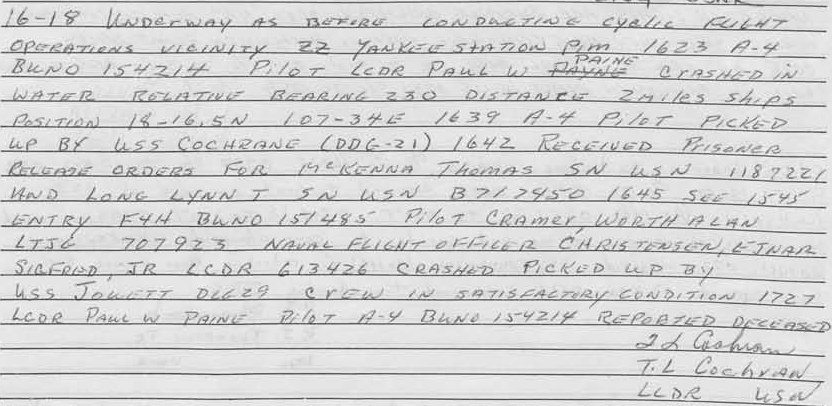 16-18 UNDERWAY AS BEFORE CONDUCTING CYCLIC FLIGHT
OPERATIONS VICINITY ZZ YANKEE STATION PIM 1623 A-4
BUNO 154214 PILOT LCDR PAUL W PAYNE PAINE CRASHED IN
WATER RELATIVE BEARING 230 DISTANCE 2 MILES SHIPS
POSITION 18-16.5N 107-34E 1639 A-4 PILOT PICKED
UP BY USS COCHRANE (DDG-21) 1642 RECEIVED PRISONER
RELEASE ORDERS FOR McKENNA THOMAS SN USN 1187221
AND LONG LYNN T SN USN B717450 1645 SEE 1545
ENTRY F4H BUNO 151485 PILOT CRAMER, WORTH ALAN
LTJG 707923 NAVAL FLIGHT OFFICER CHRISTENSEN, EJNAR
SIGFRIED, JR LCDR 613426 CRASHED PICKED UP BY
USS JOUETT DLG29 CREW IN SATISFACTORY CONDITION 1727
LCDR PAUL W PAINE PILOT A-4 BUNO 154214 REPORTED DECEASED
T L Cochran
T. L Cochran
LCDR USN